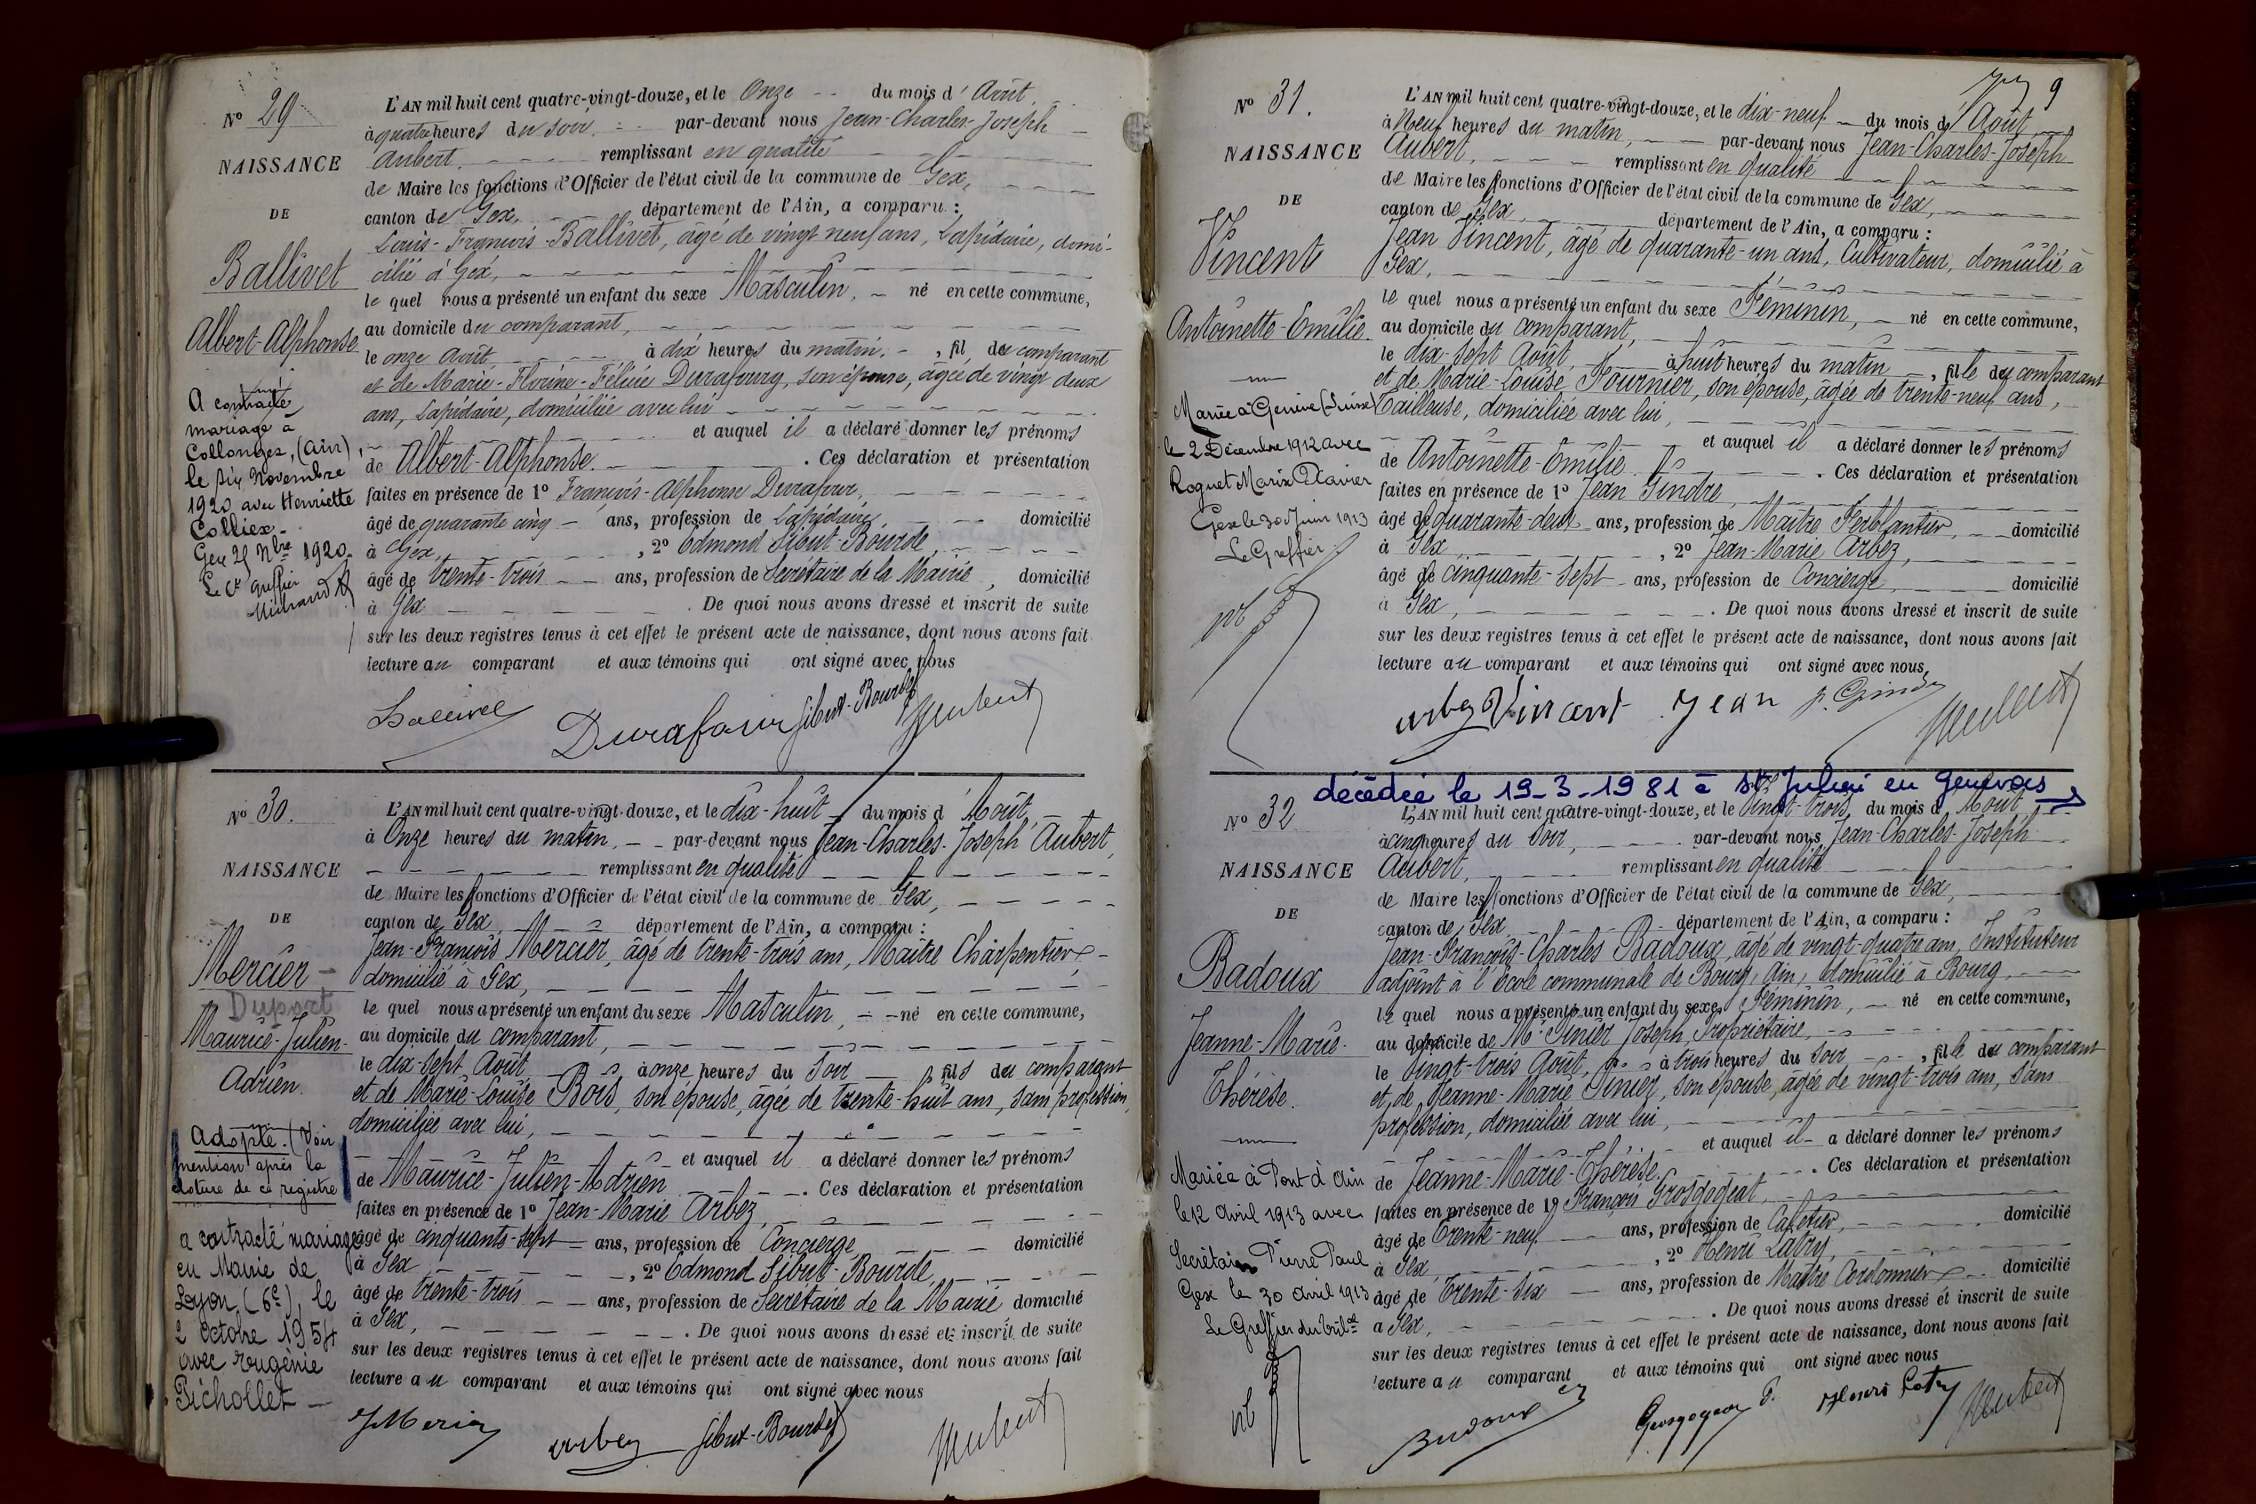 N° 29
NAISSANCE
DE
Ballivet
Albert-Alphonse
A contracté
mariage à
Collonges, (Ain),
le six Novembre
1920 avec Henriette
Colliex.
Gex 25 Nbre 1920
Le Cs greffier
L'AN mil huit cent quatre-vingt-douze, et le Onze du mois d'Août
à quatre heures du soir par-devant nous Jean-Charles-Joseph
Aubert, remplissant en qualité
de Maire les fonctions d'Officier de l'état civil de la commune de Gex,
canton de Gex, département de l'Ain, a comparu :
Louis-François Ballivet, âgé de vingt neuf ans, Lapidaire, domi-
cilié à Gex,
le quel nous a présenté un enfant du sexe Masculin, né en cette commune,
au domicile du comparant,
le onze Août, à dix heures du matin, fil du comparant
et de Marie-Florine-Félicie Durafourg, son épouse, âgée de vingt deux
ans, Lapidaire, domiciliée avec lui
et auquel il a déclaré donner les prénoms
de Albert-Alphonse. Ces déclaration et présentation
faites en présence de 1° François-Alphonse Durafour,
âgé de quarante cinq ans, profession de Lapidaire domicilié
à Gex, 2° Edmond Sibut-Bourde,
âgé de trente-trois ans, profession de Secrétaire de la Mairie, domicilié
à Gex. De quoi nous avons dressé et inscrit de suite
sur les deux registres tenus à cet effet le présent acte de naissance, dont nous avons fait
lecture au comparant et aux témoins qui ont signé avec nous
Durafour Sibut-Bourde
N° 30.
NAISSANCE
DE
Mercier
Duport
Maurice-Julien-
Adrien.
Adopté (Voir
mention après la
cloture de ce registre
a contracté mariage
en Mairie de
Lyon (6e), le
2 octobre 1954
avec Eugénie
Pichollet
L'AN mil huit cent quatre-vingt-douze, et le dix-huit du mois d'Août,
à Onze heures du matin, par-devant nous Jean-Charles-Joseph Aubert,
remplissant en qualité
de Maire les fonctions d'Officier de l'état civil de la commune de Gex,
canton de Gex, département de l'Ain, a comparu :
Jean-François Mercier, âgé de trente-trois ans, Maître Charpentier,
domicilié à Gex,
le quel nous a présenté un enfant du sexe Masculin, né en cette commune,
au domicile du comparant,
le dix-sept Août à onze heures du Soir, fils du comparant
et de Marie-Louise Bois, son épouse, âgée de trente-huit ans, sans profession,
domiciliée avec lui,
et auquel il a déclaré donner les prénoms
de Maurice-Julien-Adrien. Ces déclaration et présentation
faites en présence de 1° Jean-Marie Arbez,
âgé de cinquante-sept ans, profession de Concierge, domicilié
à Gex, 2° Edmond Sibut-Bourde,
âgé de trente-trois ans, profession de Secrétaire de la Mairie domicilié
à Gex, . De quoi nous avons dressé et inscrit de suite
sur les deux registres tenus à cet effet le présent acte de naissance, dont nous avons fait
lecture au comparant et aux témoins qui ont signé avec nous
arbez Sibut-Bourde
9
N° 31.
NAISSANCE
DE
Vincent
Antoinette-Emilie.
Mariée à Genève (Suisse)
le 2 Décembre 1912 avec
Roguet Marix Xavier
Gex le 30 Juin 1913
Le Greffier
L'AN mil huit cent quatre-vingt-douze, et le dix-neuf du mois d'Août
à Neuf heures du matin, par-devant nous Jean-Charles-Joseph
Aubert, remplissant en qualité
de Maire les fonctions d'Officier de l'état civil de la commune de Gex,
canton de Gex, département de l'Ain, a comparu :
Jean Vincent, âgé de quarante-un ans, Cultivateur, domicilié à
Gex,
le quel nous a présenté un enfant du sexe Féminin, né en cette commune,
au domicile du comparant,
le dix-sept Août, à huit heures du matin, fille du comparant
et de Marie-Louise Fournier, son épouse, âgée de trente-neuf ans,
Tailleuse, domiciliée avec lui,
et auquel il a déclaré donner les prénoms
de Antoinette-Emilie. Ces déclaration et présentation
faites en présence de 1° Jean Gindre,
âgé de quarante-deux ans, profession de Maître Ferblantier, domicilié
à Gex, 2° Jean-Marie Arbez,
âgé de cinquante-sept ans, profession de Concierge, domicilié
à Gex, . De quoi nous avons dressé et inscrit de suite
sur les deux registres tenus à cet effet le présent acte de naissance, dont nous avons fait
lecture au comparant et aux témoins qui ont signé avec nous,
arbez Vincent Jean
décédée le 19-3-1981 à St Julien en Genevois
N° 32
NAISSANCE
DE
Badoux
Jeanne-Marie-
Thérèse.
Mariée à Pont d'Ain
le 12 avril 1913 avec
Secrétain Pierre Paul
Gex le 30 avril 1913
Le Greffier du tribal
L'AN mil huit cent quatre-vingt-douze, et le Vingt-trois du mois d'Août
à cinq heures du Soir, par-devant nous Jean-Charles-Joseph
Aubert, remplissant en qualité
de Maire les fonctions d'Officier de l'état civil de la commune de Gex,
canton de Gex, département de l'Ain, a comparu :
Jean-François-Charles Badoux, âgé de vingt-quatre ans, Instituteur
adjoint à l'école communale de Bourg, Ain, domicilié à Bourg,
le quel nous a présenté un enfant du sexe Féminin, né en cette commune,
au domicile de Mr Pinier Joseph, Propriétaire,
le Vingt-trois Août, à trois heures du Soir, fille du comparant
et de Jeanne-Marie Pinier, son épouse, âgée de vingt-trois ans, sans
profession, domiciliée avec lui,
et auquel il a déclaré donner les prénoms
de Jeanne-Marie-Thérèse. Ces déclaration et présentation
faites en présence de 1° François Grosgogeat,
âgé de trente-neuf ans, profession de Cafetier, domicilié
à Gex, 2° Henri Latry,
âgé de trente-six ans, profession de Maître Cordonnier domicilié
à Gex, . De quoi nous avons dressé et inscrit de suite
sur les deux registres tenus à cet effet le présent acte de naissance, dont nous avons fait
lecture au comparant et aux témoins qui ont signé avec nous
Badoux Henri Latry